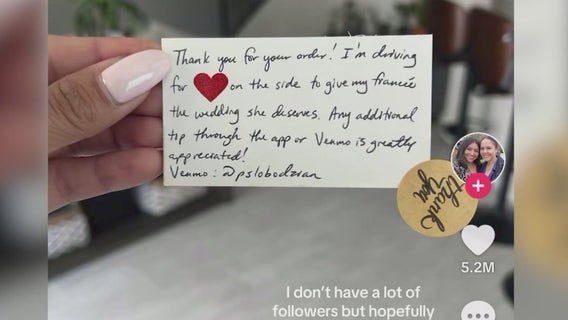 Thank you for your order! I'm driving
for ❤ on the side to give my francée
the wedding she deserves. Any additional
tip through the app or Venmo is greatly
appreciated!
Venmo: @pslobodzian
thank
you
5.2M
I don't have a lot of
followers but hopefully